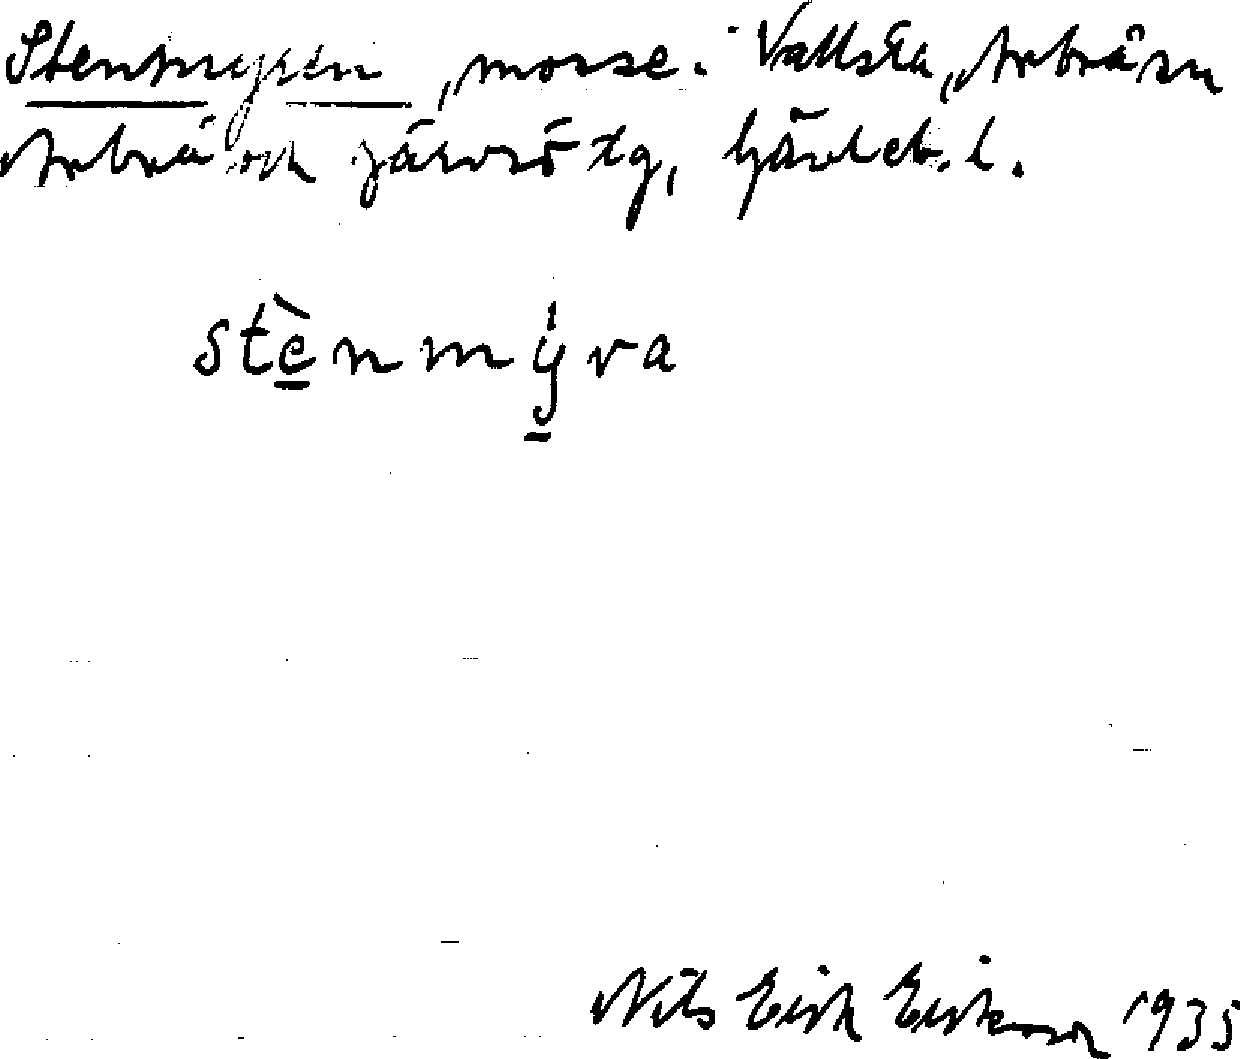 Stenmyren, mosse. Vallsta, Arbrå sn
Arbrå och Järvsö tg, Gävleb. l.
stènmýra
Nils Erik Eriksson 1935